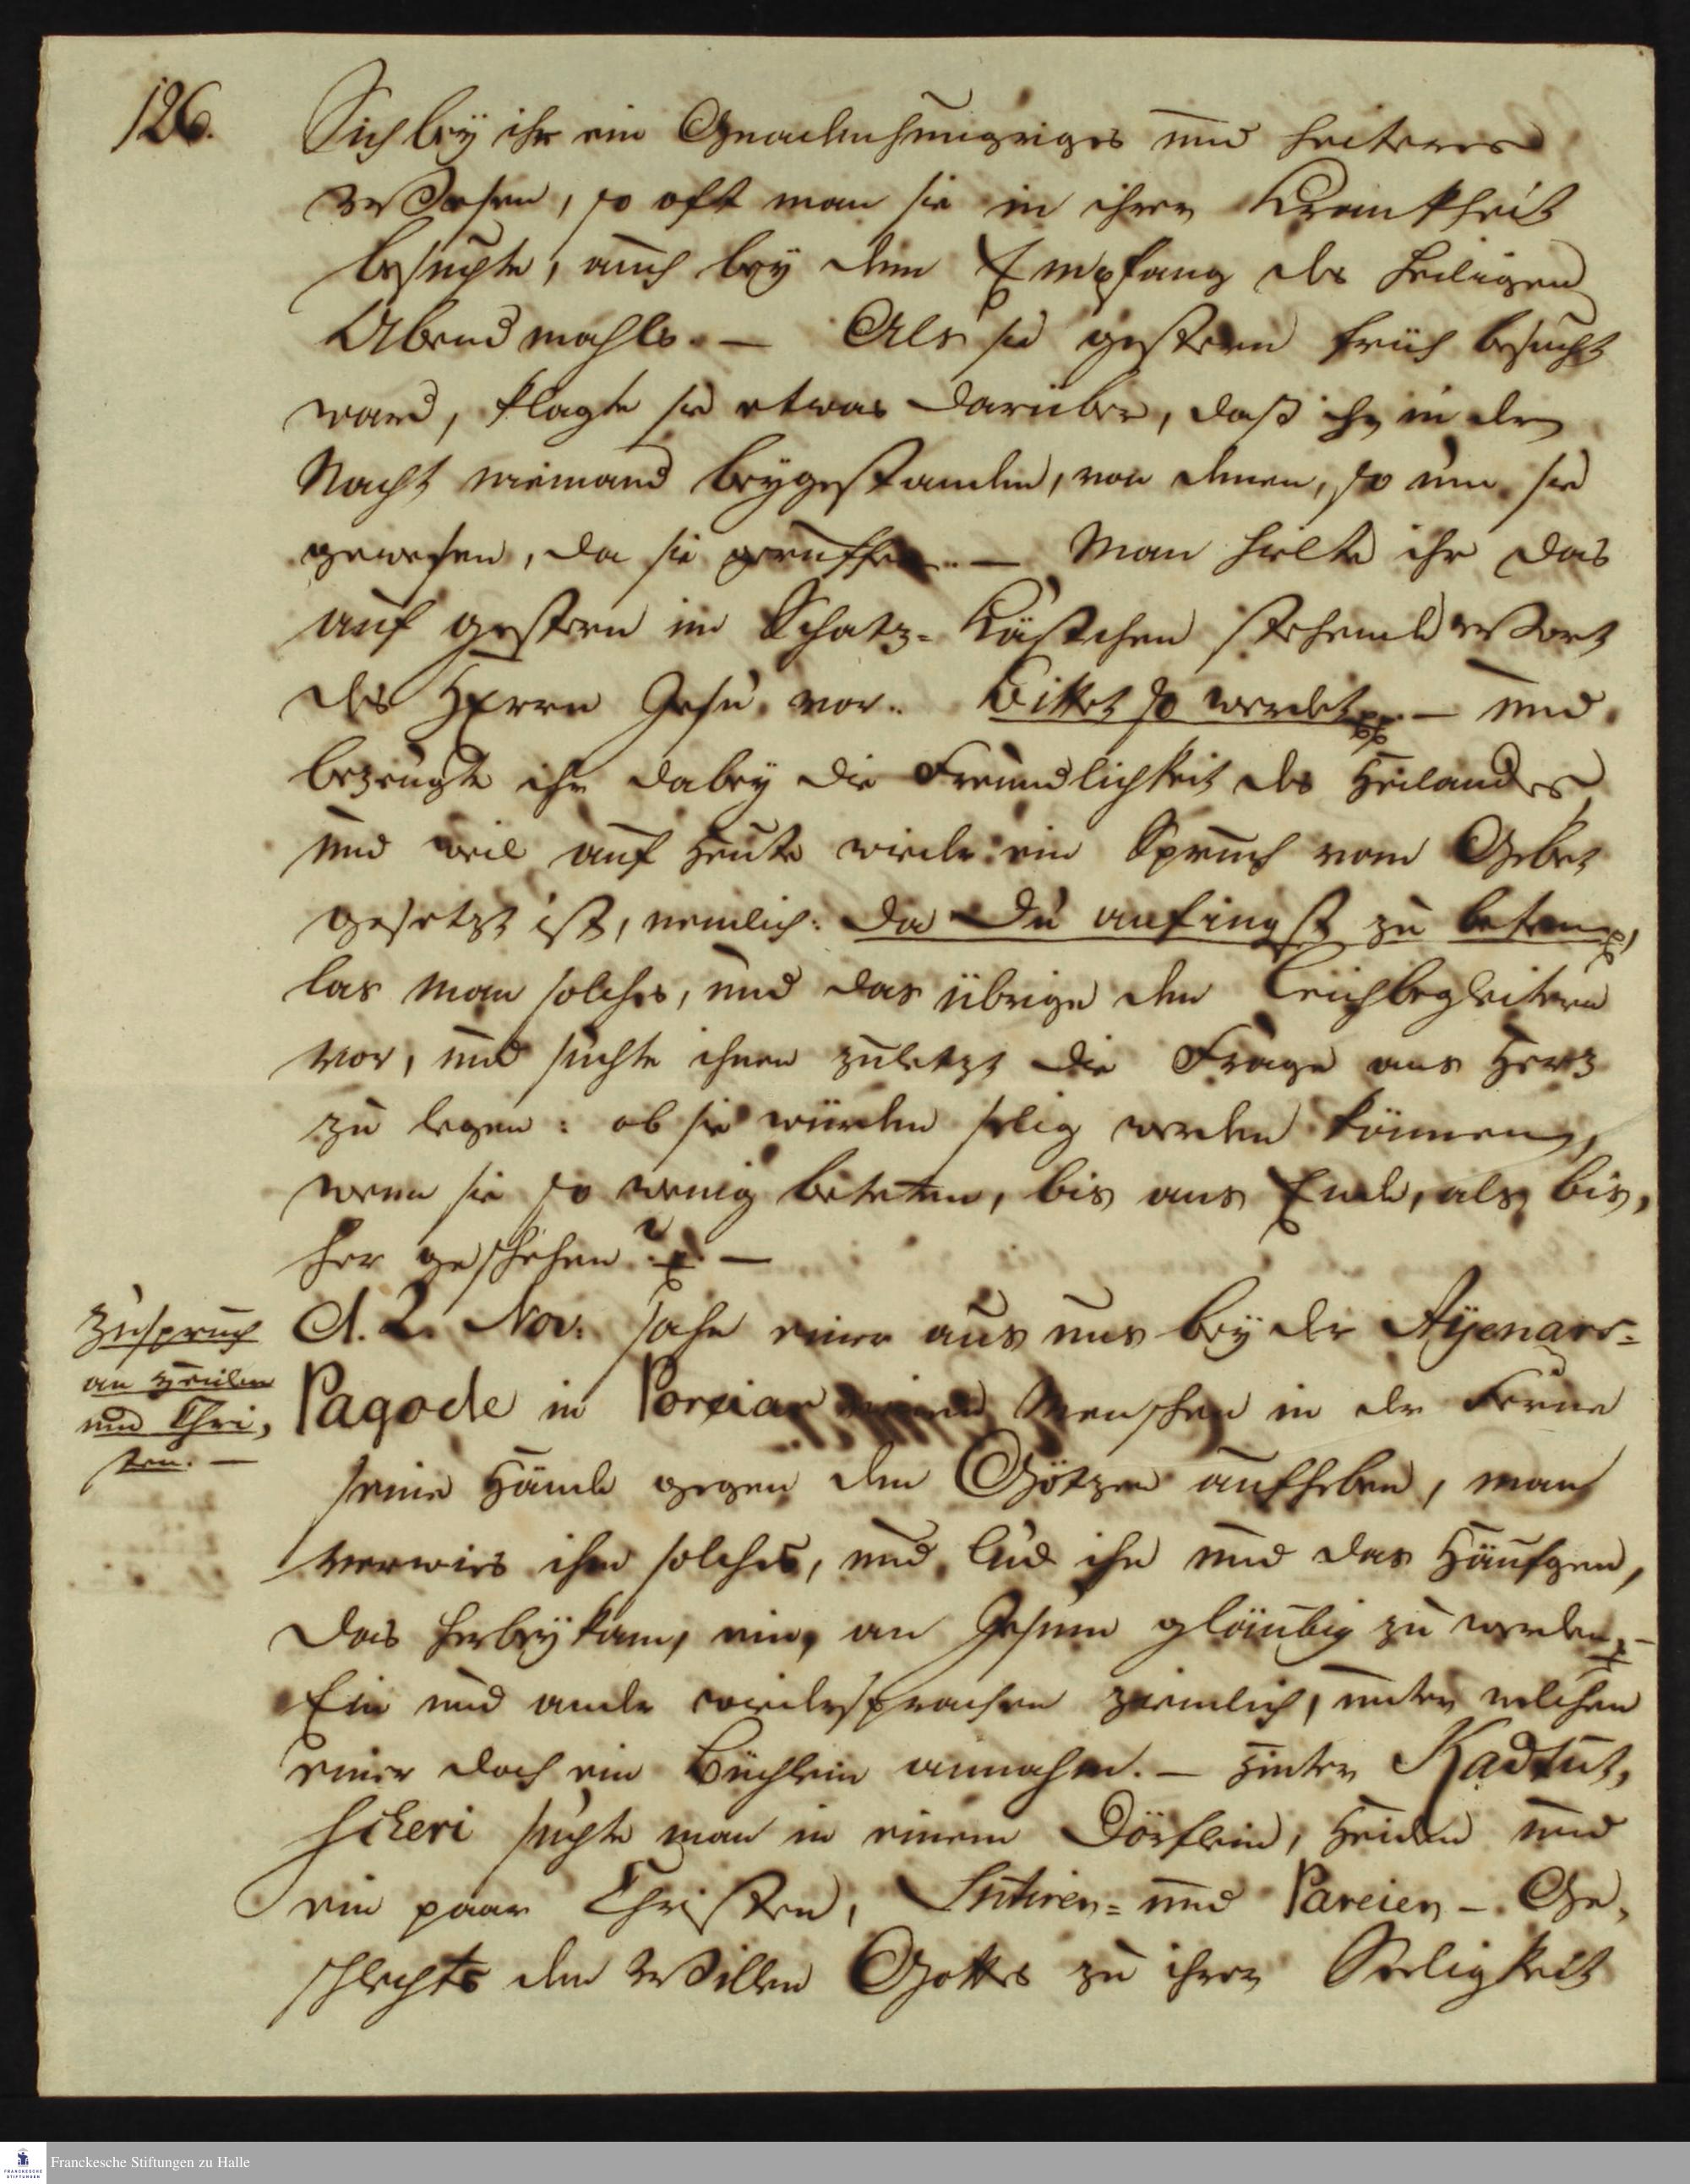 126.
Sich bey ihr ein Gnadenhungriges und heiteres
Wesen, so oft man sie in ihrer Krankheit
besuchte, auch bey dem Empfang des heiligen
Abendmahls. — Als sie gestern früh besucht
ward, klagte sie etwas darüber, daß ihr in der
Nacht niemand beygestanden, von denen, so um sie
gewesen, da sie geruffen. — Man hielte ihr das
auf gestern im Schatz-Kästchen stehende Wort
des HErrn Jesu vor. Bittet so werdet pp. — und
bezeugte ihr dabey die Freundlichkeit des Heilandes,
und weil auf heute wieder ein Spruch vom Gebet
gesetzt ist, nemlich: da Du anfingst zu beten p,
las man solches, und das übrige den Leichbegleitern
vor, und suchte ihnen zuletzt die Frage ans Herz
zu legen: ob sie würden selig werden können,
wenn sie so wenig beteten, bis ans Ende, als bis,
her geschehen? p. —
Zuspruch
an Heiden
und Chri,
sten. —
d. 2. Nov. sahe einer aus uns bey der Ayenars-
Pagode in Poreiar einen Menschen in der Ferne
seine Hände gegen den Götzen aufheben, man
verwies ihm solches, und lud ihn und das Häufgen,
das herbey kam, ein, an Jesum gläubig zu werden p. —
Ein und andre widersprachen ziemlich, unter welchen
einer doch ein Büchlein annahm. — Hinter Kadtut,
scheri suchte man in einem Dörflein, Heiden und
ein paar Christen, Sutiren- und Pareier-Ge,
schlechts den Willen Gottes zu ihrer Seligkeit
Franckesche Stiftungen zu Halle